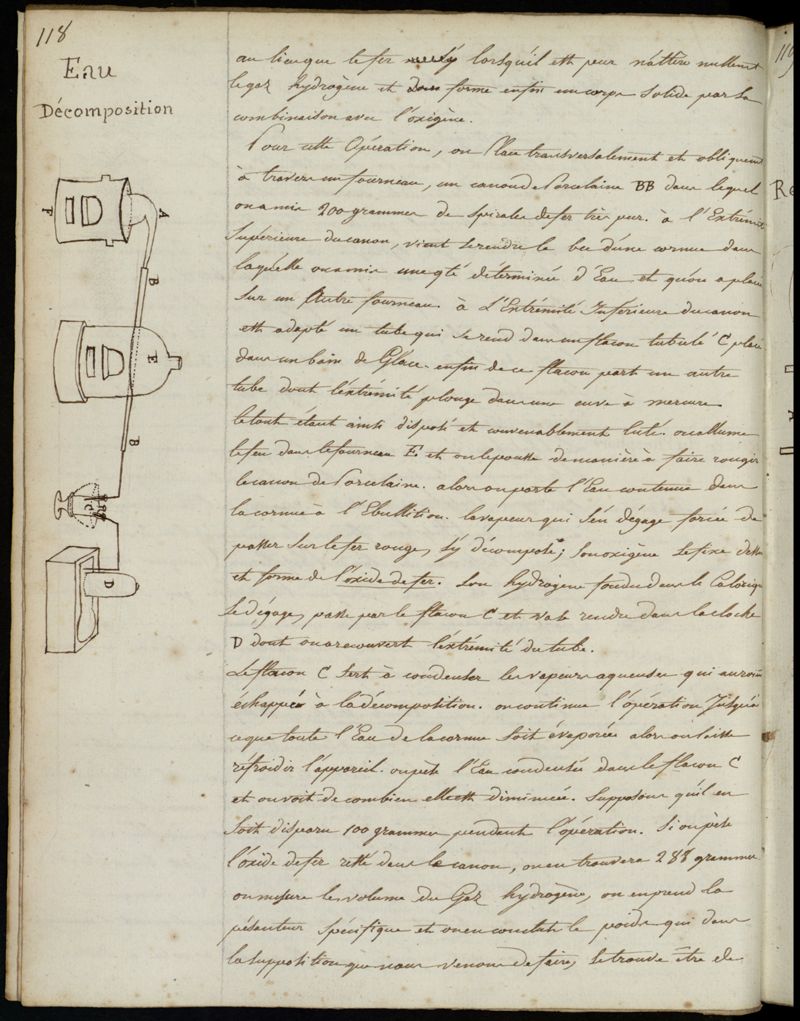 118
Eau
Décomposition
F
A
B
E
B
C
D
au lieu que le fer lorsqu'il est pur n'attire nullement
le gaz hydrogène et forme enfin un corps solide par sa
combinaison avec l'oxigène.
Pour cette Opération, on Place transversalement et obliquement
à travers un fourneau, un canon de Porcelaine BB dans lequel
on a mis 200 grammes de spirales de fer très pur. à l'Extrémité
Supérieure du canon, vient se rendre le bec d'une cornue dans
laquelle on a mis une qté déterminée d'Eau et qu'on a placé
sur un Autre fourneau. à L'Extrémité Inférieure du canon
est adapté un tube qui se rend dans un flacon tubulé C placé
dans un bain de Glace. enfin de ce flacon part un autre
tube dont l'éxtrémité plonge dans une cuve à mercure
le tout étant ainsi disposé et convenablement luté. on allume
le feu dans le fourneau E et on le pousse de manière à faire rougir
le canon de Porcelaine. alors on porte l'Eau contenue dans
la cornue à l'Ebullition. la vapeur qui s'én dégage forcée de
passer sur le fer rouge, s'y décompose; son oxigène se fixe
et forme de l'oxide de fer. Son hydrogène fondu dans le Calorique
se dégage, passe par le flacon C et va se rendre dans la cloche
D dont on a recouvert l'éxtrémité du tube.
Le flacon C sert à condenser les vapeurs aqueuses qui auroient
échappés à la décomposition. on continue l'opération Jusqu'à
ce que toute l'Eau de la cornue soit évaporée alors on laisse
réfroidir l'appareil. on pèse l'Eau condensée dans le flacon C
et on voit de combien elle est diminuée. Supposons qu'il en
soit disparu 100 grammes pendant l'opération. Si on pèse
l'oxide de fer resté dans le canon, on en trouvera 288 grammes
on mesure les volume du Gaz hydrogène, on en prend la
pésanteur spécifique et on en conclut le poids qui dans
la supposition que nous venons de faire, se trouve être de
119